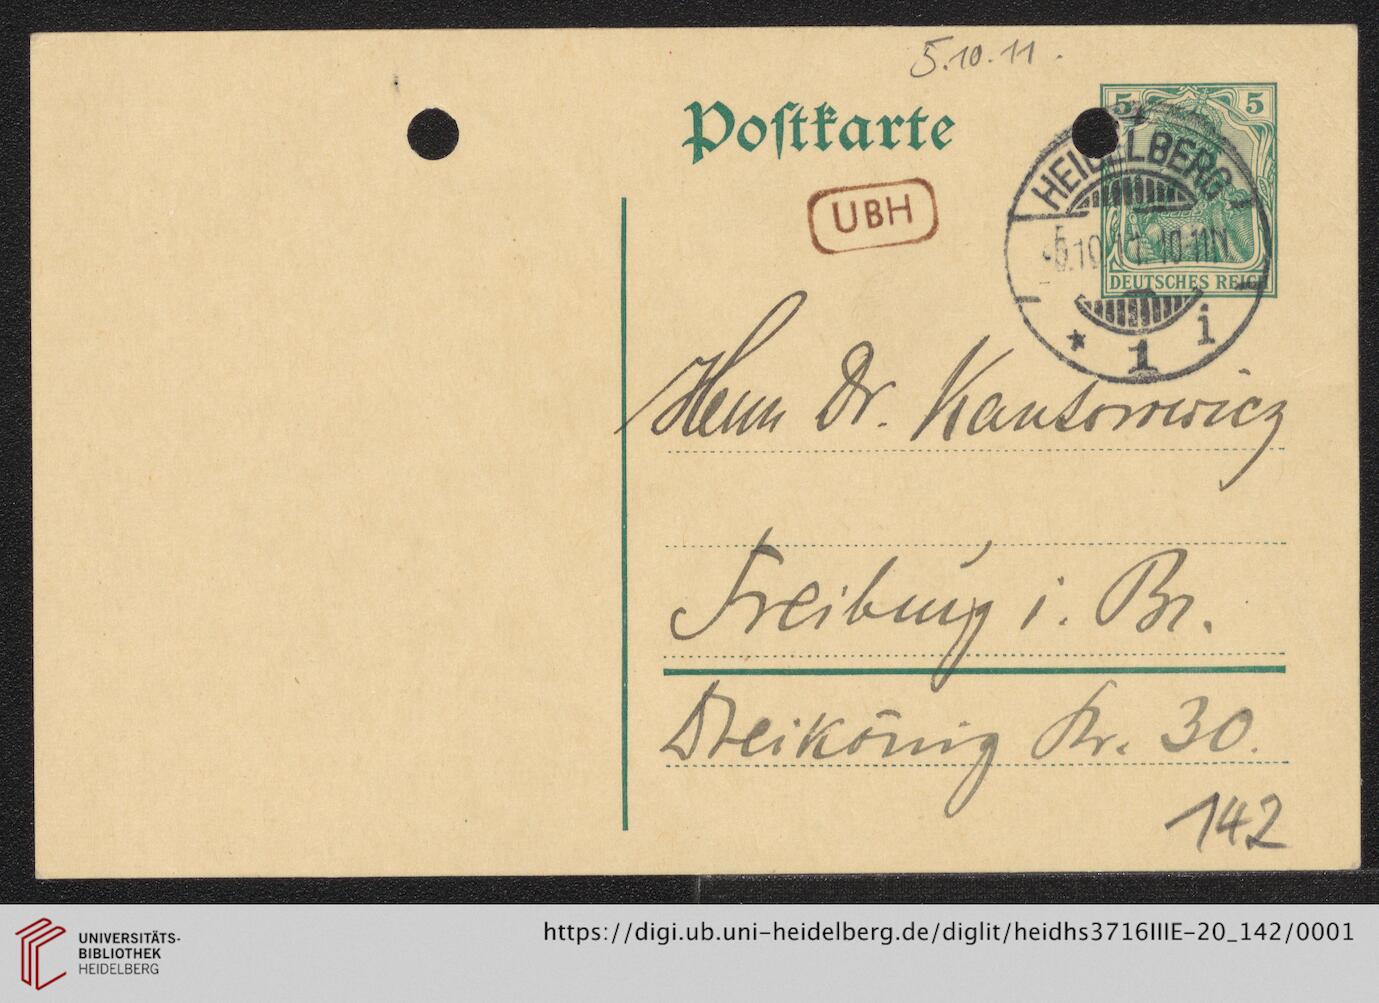 5.10.11.
Postkarte
5 5
HEIDELBERG
-5.10.11. 10-11N
* 1 i
DEUTSCHES REICH
UBH
Herrn Dr. Kantorowicz
Freiburg i. Br.
Dreikönig str. 30.
142
UNIVERSITÄTS-
BIBLIOTHEK
HEIDELBERG
https://digi.ub.uni-heidelberg.de/diglit/heidhs3716IIIE-20_142/0001